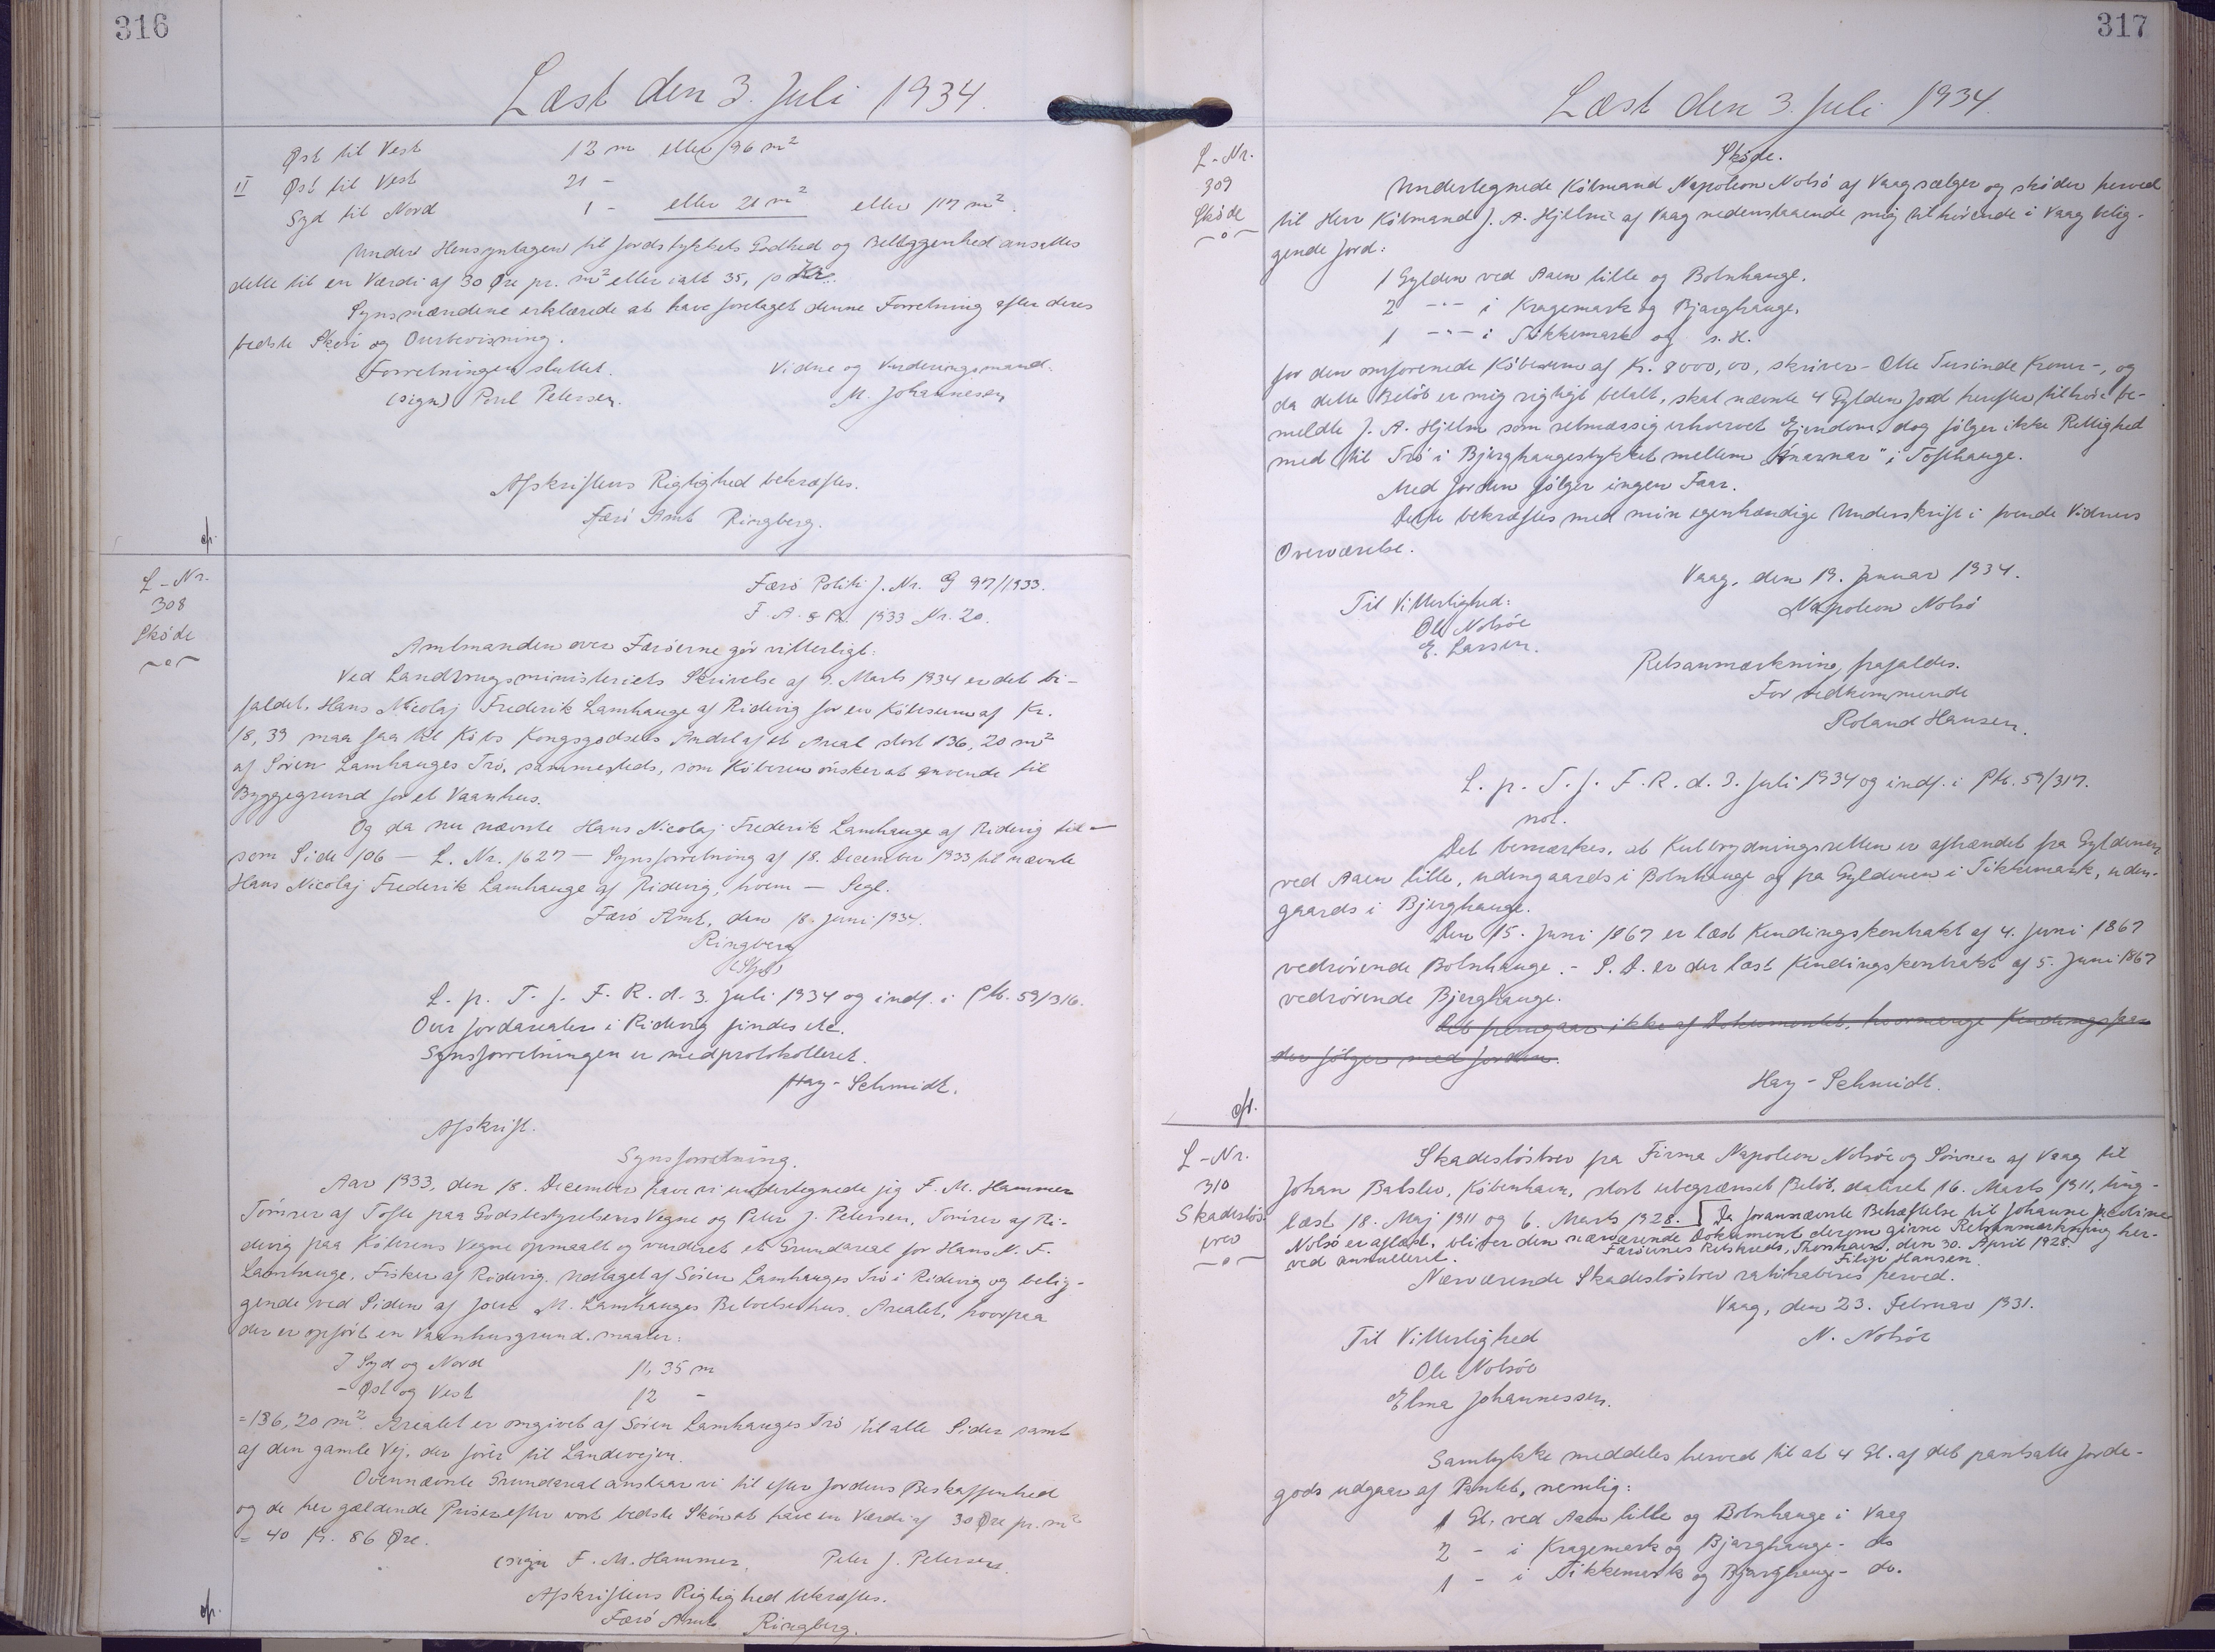 316
Læst den 3. Juli 1934.
Øst til Vest 12 m eller 96 m²
II Øst til Vest 21 -
Syd til Nord 1 - eller 21 m² eller 117 m².
Under Hensyntagen til Jordstykkets Godhed og Beliggenhed ansættes
dette til en Værdi af 30 Øre pr. m² eller ialt 35,10 Kr.
Synsmændene erklærede at have foretaget denne Forretning efter deres
bedste Skøn og Overbevisning.
Forretningen sluttet. Vidne og Vurderingsmand.
(sign) Poul Petersen. M. Johannesen
Afskriftens Rigtighed bekræftes.
Færö Amt Ringberg.
L-Nr.
308
Sköde
Færö Politi J. Nr. G 97/1933.
F. A. & Pr. 1933 Nr. 20.
Amtmanden over Færöerne gör vitterligt:
Ved Landbrugsministeriets Skrivelse af 9. Marts 1934 er det bi-
faldet, Hans Nicolaj Frederik Lamhauge af Ridevig for en Köbesum af Kr.
18,39 maa faa til Köbs Kongsgodsets Andel af et Areal stort 136,20 m²
af Sören Lamhauges Trö, sammesteds, som Köberen önsker at anvende til
Byggegrund for et Vaanhus.
Og da nu nævnte Hans Nicolaj Frederik Lamhauge af Ridevig tid-
som Side 106 - L. Nr. 1627 - Synsforretning af 18. December 1933 til nævnte
Hans Nicolaj Frederik Lamhauge af Ridevig, hvem - Segl.
Færö Amt, den 18. Juni 1934.
Ringberg
L. p. T. f. F. R. d. 3. Juli 1934 og indf. i Ptk. 59/316.
Over Jordarealer i Ridevig findes etc.
Synsforretningen er medprotokolleret.
Hay-Schmidt.
Afskrift.
Synsforretning.
Aar 1933, den 18. December have vi undertegnede jig F. M. Hammer
Tömrer af Tofte paa Godsbestyrelsens Vegne og Peter J. Petersen, Tömrer af Ri-
devig paa Köberens Vegne opmaalt og vurderet et Grundareal for Hans N. F.
Lamhauge, Fisker af Ridevig. Udtaget af Sören Lamhauges Trö i Ridevig og belig-
gende ved Siden af Joen M. Lamhauges Beboelseshus. Arealet, hvorpaa
der er opfört en Vaanhusgrund. maaler:
I Syd og Nord 11,35 m
- Øst og Vest 12 -
=136,20 m². Arealet er omgivet af Sören Lamhauges Trö til alle Sider samt
af den gamle Vej, der förer til Landevejen.
Ovennævnte Grundareal anslaar vi til efter Jordens Beskaffenhed
og de her gældende Priser efter vort bedste Skön at have en Værdi af 30 Øre pr. m²
= 40 Kr. 86 Øre.
(sign F. M. Hammer. Peter J. Petersen.
Afskriftens Rigtighed bekræftes.
Færö Amt Ringberg.
317
Læst den 3. Juli 1934.
L-Nr.
309
Sköde
Sköde.
Undertegnede Köbmand Napoleon Nolsö af Vaag sælger og sköder herved
til Herr Köbmand J. A. Hjelm af Vaag nedenstaaende mig tilhörende i Vaag belig-
gende Jord:
1 Gylden ved Aaen lille og Bolnhauge.
2 -"- i Kragemark og Bjarghauge.
1 -"- i Tikkemark og s. H.
for den omforenede Köbesum af Kr. 8000,00, skriver - Otte Tusinde Kroner -, og
da dette Belöb er mig rigtigt betalt, skal nævnte 4 Gylden Jord herefter tilhöre be-
meldte J. A. Hjelm som retmæssig erhvervet Ejendom, dog fölger ikke Rettighed
med til Trö i Bjerghaugestykket mellem "Anarnar" i Tofthauge.
Med Jorden fölger ingen Faar.
Dette bekræftes med min egenhændige Underskrift i tvende Vidners
Overværelse.
Vaag, den 19. Januar 1934.
Til Vitterlighed: Napoleon Nolsö
Ole Nolsöe
E. Larsen.
Retsanmærkning frafaldes.
For vedkommende
Roland Hansen.
L. p. T. f. F. R. d. 3. Juli 1934 og indf. i Ptk. 59/317.
not.
Det bemærkes, at Kulbrydningsretten er afhændet fra Gyldenen
ved Aaen lille, udengaards i Bolnhauge og fra Gyldenen i Tikkemark, uden-
gaards i Bjerghauge.
Den 15. Juni 1867 er læst Kendingskontrakt af 4. Juni 1867
vedrörende Bolnhauge. - S. D. er der læst Kendingskontrakt af 5. Juni 1867
vedrörende Bjerghauge.
Det fremgaar ikke af Dokumentet, hvormange Kendingsfaar
der fölger med Jorden.
Hay-Schmidt.
L-Nr.
310
Skadeslös-
brev
Skadeslösbrev fra Firma Napoleon Nolsöe og Sönner af Vaag til
Johan Balslev, Köbenhavn, stort ubegrænset Belöb, dateret 16. Marts 1911, ting-
læst 18. Maj 1911 og 6. Marts 1928. Da forannævnte Behæftelse til Johanne Pedine
Nolsö er aflæst, bliver den nærværende Dokument derom givne Retsanmærkning her-
ved annulleret. Færöernes Retskreds, Thorshavn, den 30. April 1928.
Filip Hansen
Nærværende Skadeslösbrev ratihaberes herved.
Vaag, den 23. Februar 1931.
Til Vitterlighed N. Nolsöe
Ole Nolsöe
Elma Johannessen.
Samtykke meddeles herved til at 4 Gl. af det pantsatte Jorde-
gods udgaar af Pantet, nemlig:
1 Gl. ved Aaen lille og Bolnhauge i Vaag
2 - i Kragemark og Bjarghauge - do
1 - i Tikkemark og Bjarghauge - do.